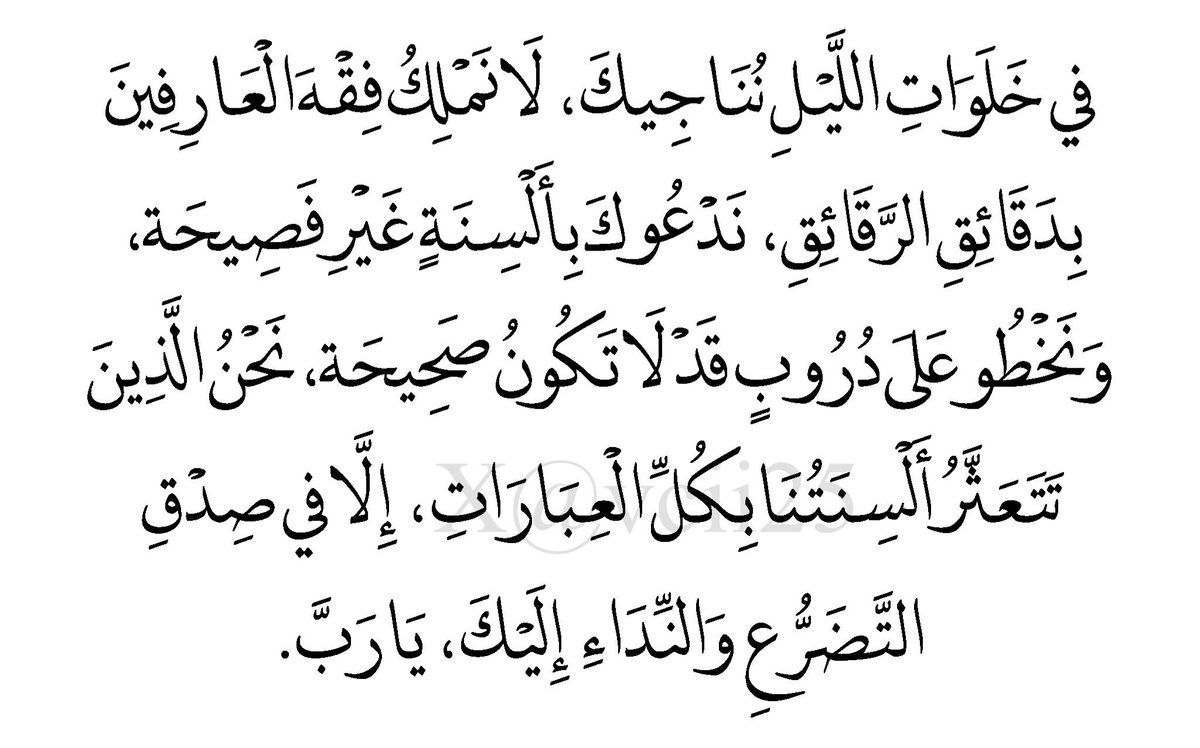 في خَلَوَاتِ اللَّيْلِ نُنَاجِيكَ، لَا نَمْلِكُ فِقْهَ الْعَارِفِينَ
بِدَقَائِقِ الرَّقَائِقِ، نَدْعُوكَ بِأَلْسِنَةٍ غَيْرِ فَصِيحَة،
وَنَخْطُو عَلَى دُرُوبٍ قَدْ لَا تَكُونُ صَحِيحَة، نَحْنُ الَّذِينَ
تَتَعَثَّرُ أَلْسِنَتُنَا بِكُلِّ الْعِبَارَاتِ، إِلَّا في صِدْقِ
X@voii25
التَّضَرُّعِ وَالنِّدَاءِ إِلَيْكَ، يَا رَبَّ.